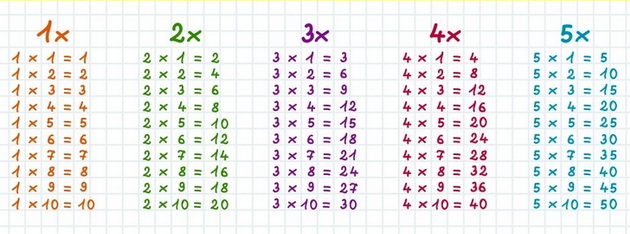 1x
1 × 1 = 1
1 × 2 = 2
1 × 3 = 3
1 × 4 = 4
1 × 5 = 5
1 × 6 = 6
1 × 7 = 7
1 × 8 = 8
1 × 9 = 9
1 × 10 = 10
2x
2 × 1 = 2
2 × 2 = 4
2 × 3 = 6
2 × 4 = 8
2 × 5 = 10
2 × 6 = 12
2 × 7 = 14
2 × 8 = 16
2 × 9 = 18
2 × 10 = 20
3x
3 × 1 = 3
3 × 2 = 6
3 × 3 = 9
3 × 4 = 12
3 × 5 = 15
3 × 6 = 18
3 × 7 = 21
3 × 8 = 24
3 × 9 = 27
3 × 10 = 30
4x
4 × 1 = 4
4 × 2 = 8
4 × 3 = 12
4 × 4 = 16
4 × 5 = 20
4 × 6 = 24
4 × 7 = 28
4 × 8 = 32
4 × 9 = 36
4 × 10 = 40
5x
5 × 1 = 5
5 × 2 = 10
5 × 3 = 15
5 × 4 = 20
5 × 5 = 25
5 × 6 = 30
5 × 7 = 35
5 × 8 = 40
5 × 9 = 45
5 × 10 = 50